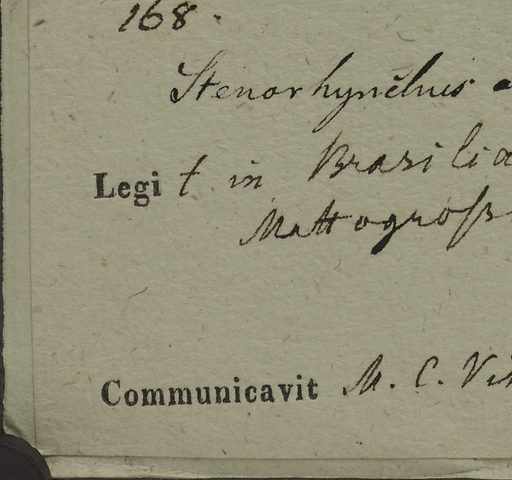 168.
Stenorhynchus
Legit in Brasilia
Mattogroß
Communicavit M. C.